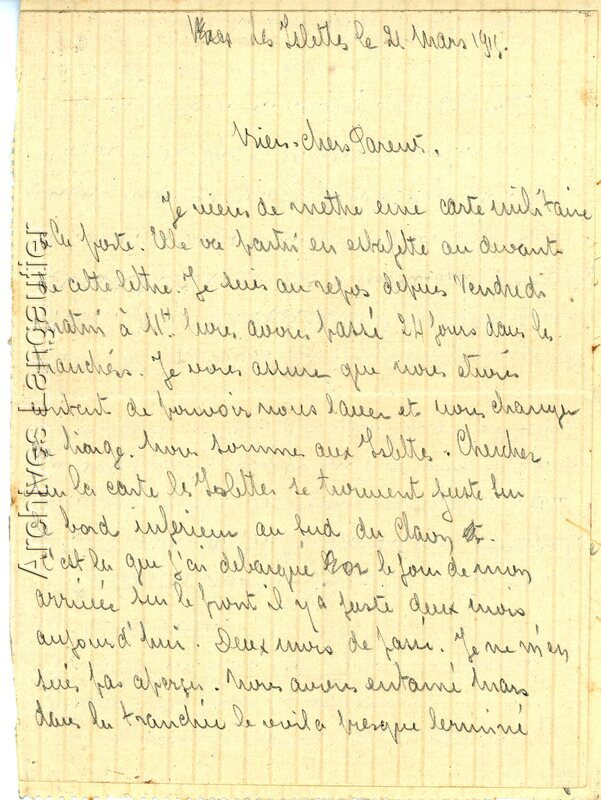 Les Islettes le 21 Mars 1915.
Biens chers Parent.
Je viens de mettre une carte militaire
à la poste. Elle va partir en estafette au devant
de cette lettre. Je suis au repos depuis Vendredi
matin à 11h. Nous avons passé 24 jours dans les
tranchés. Je vous assure que nous etions
content de pouvoir nous laver et nous changer
de linge. Nous somme aux Islettes. Cherchez
sur la carte les Isslettes se trouvent juste sur
le bord inférieur au sud du Claon
C'est la que j'ai debarqué le jour de mon
arrivée sur le front il y a juste deux mois
aujourd'hui. Deux mois de passé. Je ne m'en
suis pas aperçu. Nous avons entamé Mars
dans la tranchée le voila presque terminé
Archives Pinsonguillet